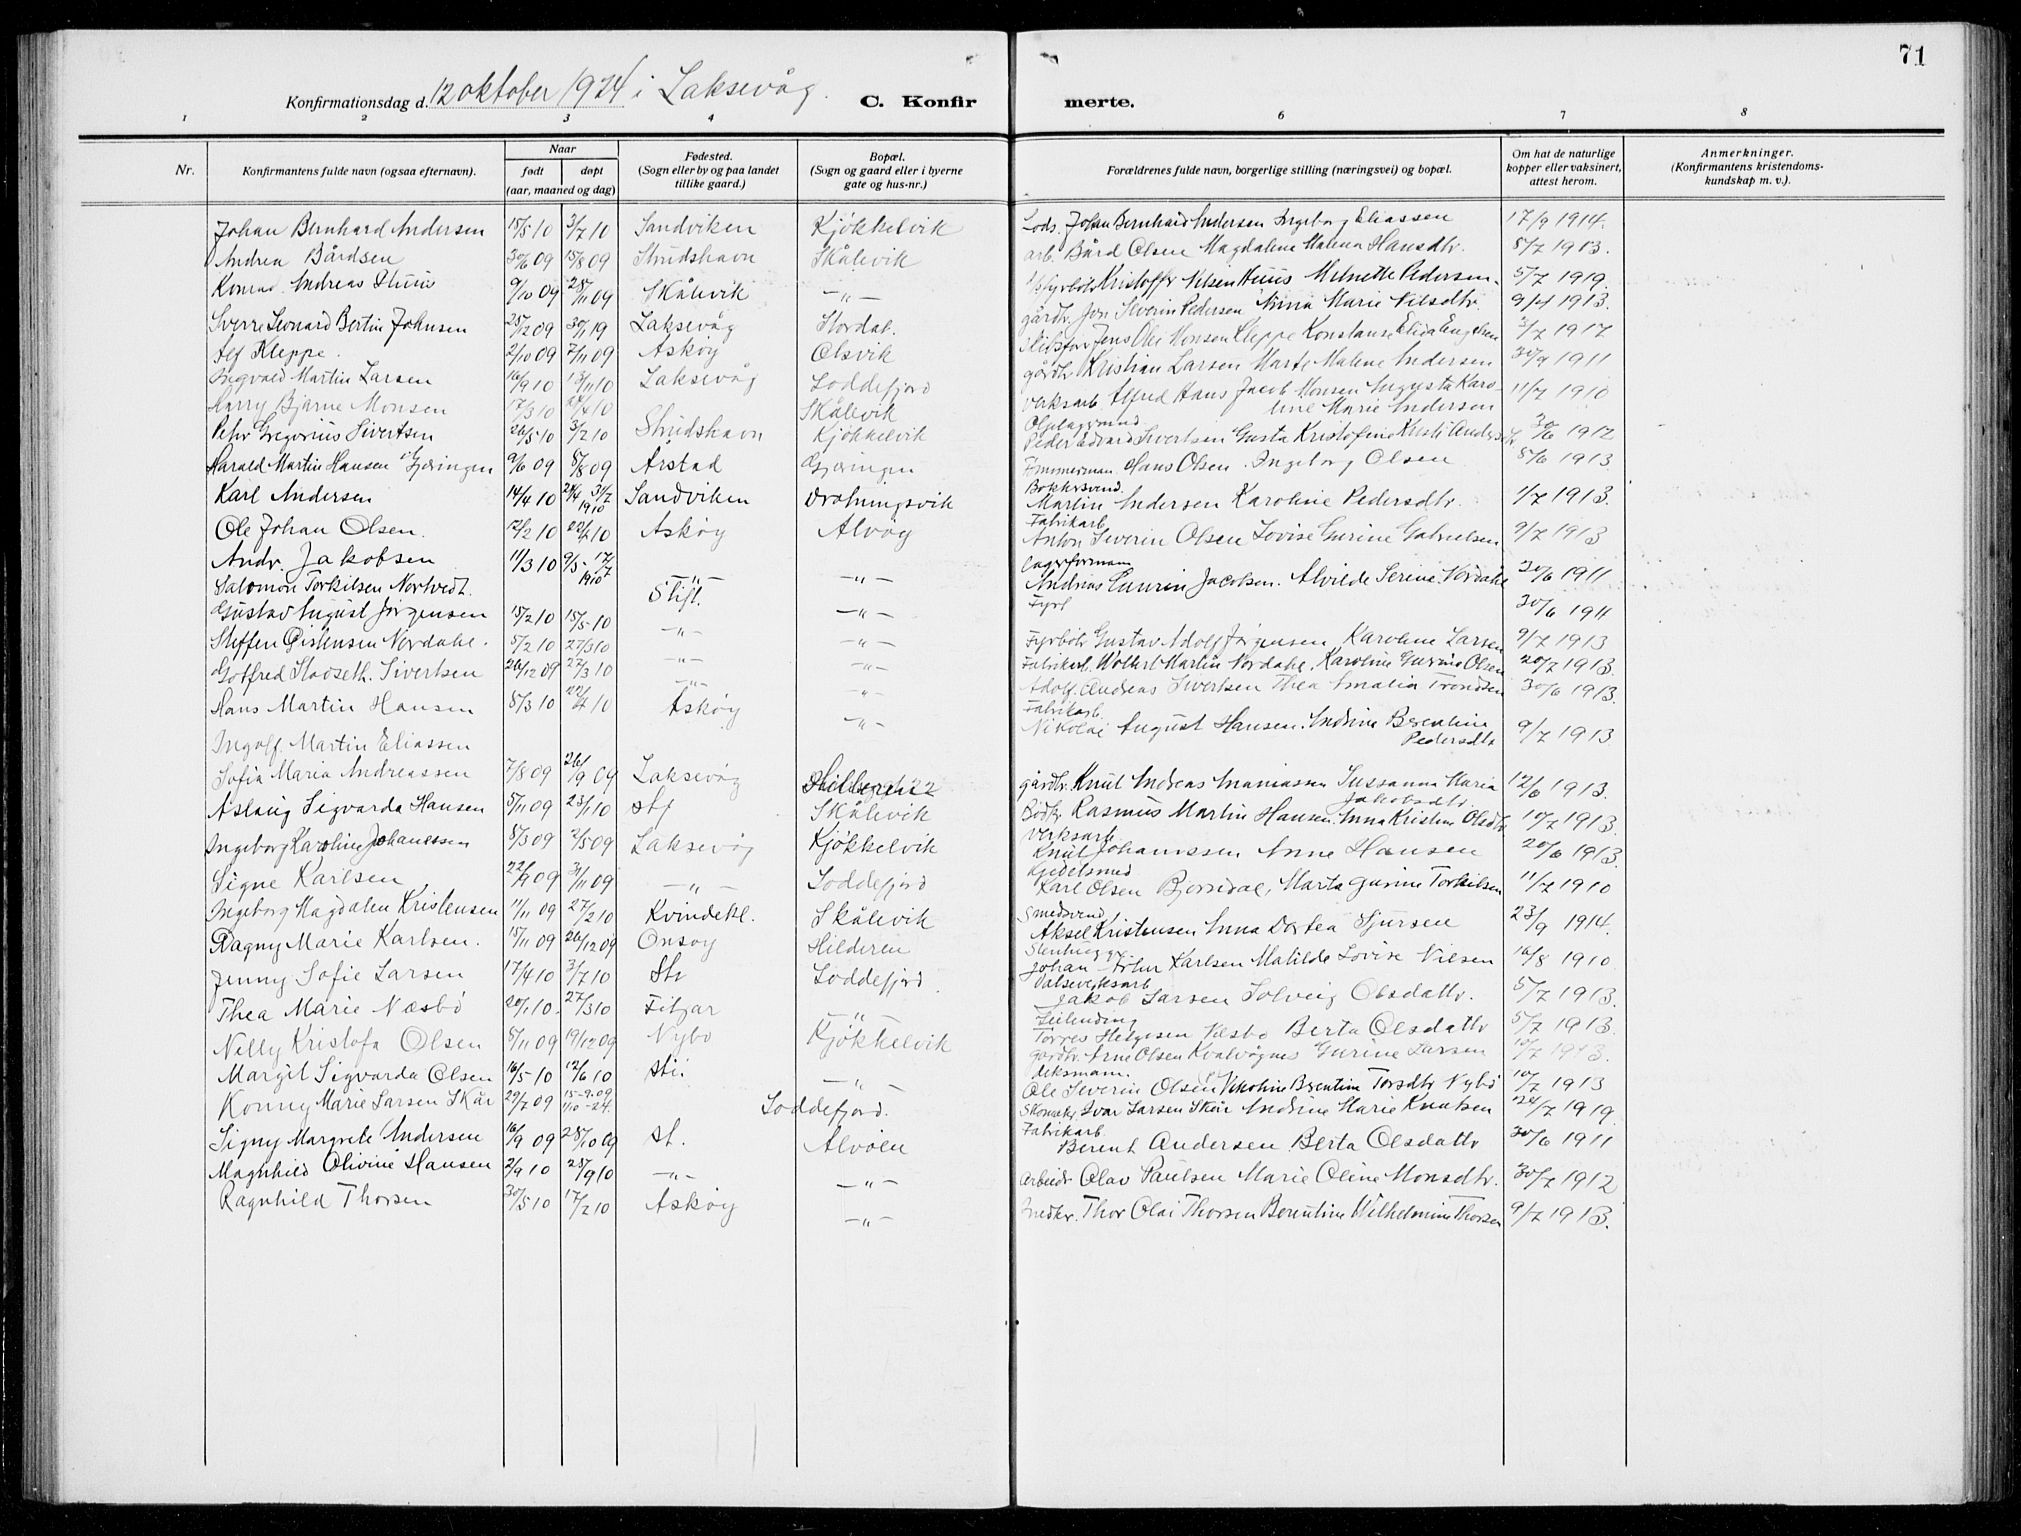 71
Konfirmationsdag d. 12 oktober 1924 i Laksevåg.
C. Konfir merte.
1 2 3 4 6 7 8
Nr.
Konfirmantens fulde navn (ogsaa efternavn).
Naar
født døpt
(aar, maaned og dag)
Fødested.
(Sogn eller by og paa landet
tillike gaard.)
Bopæl.
(Sogn og gaard eller i byerne
gate og hus-nr.)
Forældrenes fulde navn, borgerlige stilling (næringsvei) og bopæl.
Om hat de naturlige
kopper eller vaksinert,
attest herom.
Anmerkninger.
(Konfirmantens kristendoms-
kundskap m. v.).
Johan Bernhard Andersen 15/5 10 3/7 10 Sandviken Kjøkkelvik Lods. Johan Bernhard Andersen Ingeborg Eliassen 17/9 1914.
Andrea Bårdsen 30/6 09 15/8 09 Strudshavn Skålevik arb. Bård Olsen Magdalene Malena Hansdtr. 8/7 1913.
Konrad Andreas Huus 9/10 09 28/11 09 Skålevik -"- Kristoffer Nilsen Huus Pedersen 5/7 1919.
Sverre Leonard Bertin Johnsen 25/12 09 Laksevåg Stordal. gårdbr. Jon Severin Pedersen Anna Marie Nilsdtr. 9/4 1913.
Alf Kleppe. 2/10 09 7/11 09 Askøy Olsvik Jens Ole Monsen Kleppe Konstanse Elida Engelsen 3/7 1917
Ingvald Martin Larsen 16/9 10 13/11 10 Laksevåg Loddefjord gårdbr Kristian Larsen Marte Malene Andersen 30/9 1911
Harry Bjarne Monsen 17/3 10 24/4 10 Skålevik Verksarb. Alfred Hans Jacob Monsen Augusta Karo-
line Marie Andersen 11/7 1910
Peter Gregorius Sivertsen 26/5 10 3/7 10 Strudshavn Kjøkkelvik Peder Edvard Sivertsen Gusta Kristofine 30/6 1912
Harald Martin Hansen Gjeringen 9/6 09 8/8 09 Årstad Gjeringen Tømmerman. Hans Olsen. Ingeborg Olsen 8/6 1913
Karl Andersen 14/4 10 24/4 31/7 1910 Sandviken Drotningsvik Bøkkersvend. Martin Andersen Karoline Pedersdtr. 1/7 1913.
Ole Johan Olsen. 12/2 10 22/5 10 Askøy Alvøy Fabrikarb. Anton Severin Olsen Lovise Gurine Gabrielsen 9/7 1913
Andr. Jakobsen 11/3 10 9/5 - 17/7 1910 -"- -"- Lagerformann Andreas Laurin Jacobsen. Alvilde Serine Nordahl 30/6 1911
Salomon Torkilsen Nortvedt. Stift. Fyrb 30/6 1911
Gustav August Jørgensen 15/2 10 15/5 10 -"- -"- Fyrbøter Gustav Adolf Jørgensen Karoline Larsen 9/7 1913
Steffen Cristensen Nordahl. 5/2 10 27/3 10 -"- -"- Fabrikarb. Wollert Martin Nordahl. Karoline Gurine Olsen 20/7 1913.
Gotfred Hadseth. Sivertsen 26/12 09 27/3 10 -"- -"- Adolf Andreas Sivertsen Thea Amalia Trondsen 30/6 1913.
Hans Martin Hansen 8/3 10 22/5 10 Askøy -"- Fabrikarb. Nikolai August Hansen. Andrine Berentine
Pedersdtr 9/7 1913
Ingolf Martin Eliassen
Sofia Maria Andreassen 7/8 09 26/9 09 Laksevåg gårdbr. Knut Andreas Ananiassen Sussanna Maria
Jakobsdtr. 12/6 1913.
Aslaug Sigvarda Hansen 5/11 09 23/1 10 Stf Skålevik Bødker Rasmus Martin Hansen. Anna Kristine Olsdtr. 10/7 1913.
Ingeborg Karoline Johanessen 8/3 09 2/5 09 Laksevåg Kjøkkelvik Verksarb. Knut Johannssen Anne Hansen 20/6 1913.
Signe Karlsen 22/9 09 3/11 09 -"- Loddefjord Kjedelsmed Karl Olsen Bjørndal, Marta Gurine Torkilsen 11/7 1910
Ingeborg Magdalen Kristensen 11/11 09 27/2 10 Kvindekl. Skålevik Smedsvend Aksel Kristensen Anna Dortea Sjursen 23/9 1914.
Ragny Marie Karlsen. 15/11 09 26/12 09 Onsøy Hilderen Stenhugger Johan Artur Karlsen Matilde Lovise Nilsen 16/8 1910
Jenny Sofie Larsen 17/4 10 3/7 10 Str Loddefjord Valseverksarb Jakob Larsen Solveig Olsdattr. 5/7 1913.
Thea Marie Næsbø 20/1 10 27/3 10 Fitjar -"- Leilending Torres Helgesen Næsbø Berta Olsdattr 5/7 1913.
Nelly Kristofa Olsen 5/11 09 19/12 09 Nybø Kjøkkelvik gårdbr. Arne Olsen Kvalvågnes Gurine Larsen 10/7 1913.
Margit Sigvarda Olsen 16/5 10 12/6 10 Sti. -"- deksmann. Ole Severin Olsen Nikoline Berentine Torsdtr Nybø 10/7 1913
Konny Marie Larsen Skår 29/7 09 15-9-09 1/10-24. Loddefjord. Skomaker. Ivar Larsen Skår Andrine Marie Knutsen 24/7 1919.
Signy Margrete Andersen 16/9 09 28/10 09 St. Alvøen Fabrikarb. Berent Andersen Berta Olsdattr 30/6 1911
Magnhild Olivine Hansen 2/9 10 25/9 10 -"- -"- Arbeider Olav Paulsen Marie Oline Monsdtr. 30/7 1912
Ragnhild Thorsen 30/5 10 17/7 10 Askøy -"- Snedker. Thor Olai Thorsen Berentine Wilhelmine Thorsen 9/7 1913.